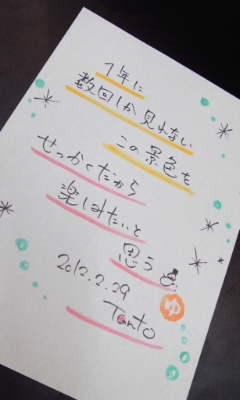 1年に
数回しか見れない
この景色を
せっかくだから
楽しみたいと
思う
2012.2.29
Tanto
ゆ